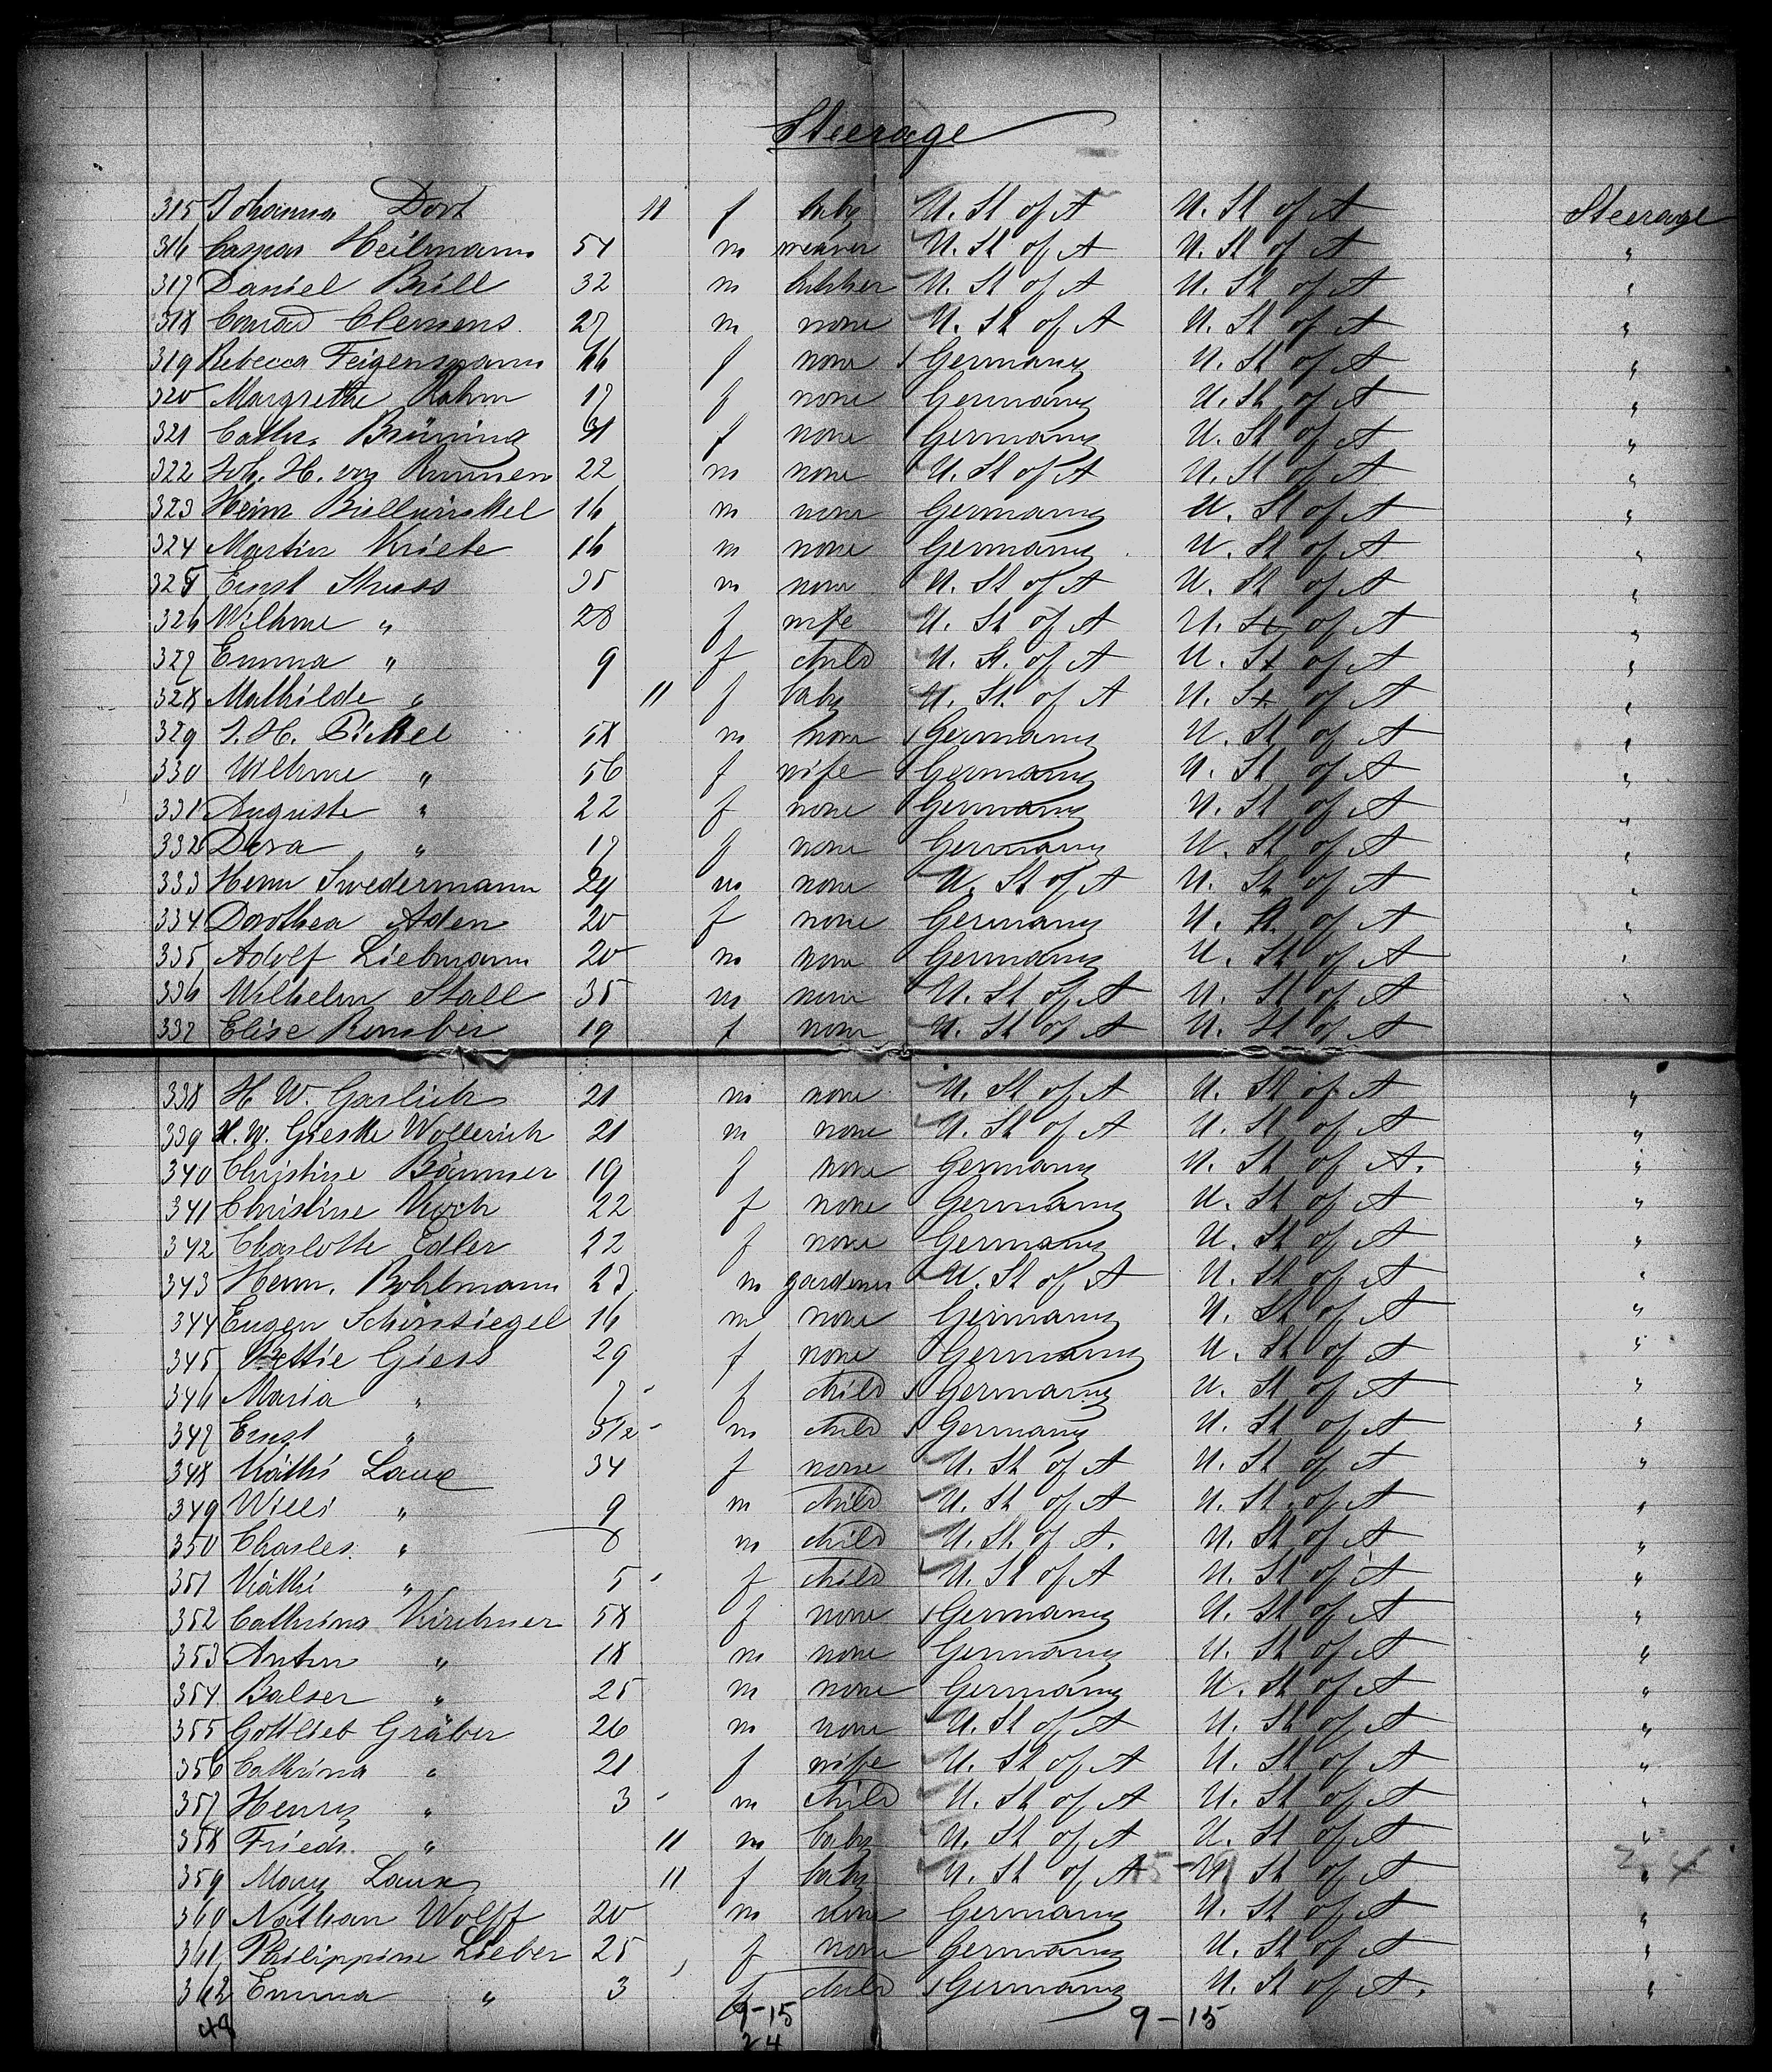 Steerage
315 Johanna Dort 11 f baby U. St of A U. St of A Steerage
316 Caspar Heilmann 54 m weaver U. St of A U. St of A "
317 Daniel Brill 32 m butcher U. St of A U. St of A "
318 Conrad Clemens 27 m none U. St of A U. St of A "
319 Rebecca Feigenspann 16 f none Germany U. St of A "
320 Margrethe Rahm 17 f none Germany U. St of A "
321 Cathr. Brüning 31 f none Germany U. St of A "
322 Joh. H. von Runnen 22 m none U. St of A U. St of A "
323 Heinr 16 m none Germany U. St of A "
324 Martin Kriete 16 m none Germany U. St of A "
325 Ernst Struss 35 m none U. St of A U. St of A "
326 Wilhme " 28 f wife U. St of A U. St of A "
327 Emma " 9 f child U. St. of A U. St of A "
328 Mathilde " 11 f baby U. St. of A U. St of A "
329 J. H. Pickel 58 m none Germany U. St of A "
330 Wilhme " 56 f wife Germany U. St of A "
331 Auguste " 22 f none Germany U. St of A "
332 Dora " 17 f none Germany U. St of A "
333 Herm Swedermann 24 m none U. St of A U. St of A "
334 Dorothea Aden 20 f none Germany U. St of A "
335 Adolf Liebmann 20 m none Germany U. St of A "
336 Wilhelm Stall 35 m none U. St of A U. St of A "
337 Elise 19 f none U. St of A U. St of A
338 H W. Garlich 21 m none U. St of A U. St of A "
339 H. W. Gieske Wollerich 21 m none U. St of A U. St of A "
340 Christine Bömmer 19 f none Germany U. St of A. "
341 Christine Koch 22 f none Germany U. St of A "
342 Charlotte Edler 22 f none Germany U. St of A "
343 Herm. Bohlmann 23 m gardener U. St of A U. St of A "
344 Eugen Schirstiegel 16 m none Germany U. St of A "
345 Bettie Giess 29 f none Germany U. St of A "
346 Maria " 7 f child Germany U. St of A "
347 Ernst " 5 1/2 m child Germany U. St of A "
348 Käthi Laux 34 f none U. St of A U. St of A "
349 Willi " 9 m child U. St of A U. St of A "
350 Charles " 8 m child U. St. of A. U. St of A "
351 Käthi " 5 f child U. St of A U. St of A "
352 Cathrina Kirchner 58 f none Germany U. St of A "
353 Anton " 18 m none Germany U. St of A "
354 Balser " 25 m none Germany U. St of A "
355 Gottlieb Gräber 26 m none U. St of A U. St of A "
356 Cathrina " 21 f wife U. St of A U. St of A "
357 Henry " 3 m child U. St of A U. St of A "
358 Friedr. " 11 m baby U. St of A U. St of A "
359 Mary Laux 11 f baby U. St of A U. St of A "
360 Nathan Wolff 20 m none Germany U. St of A "
361 Philippine Lieber 25 f none Germany U. St of A "
362 Emma " 3 f child Germany U. St of A. "
48 9-15 9-15
24